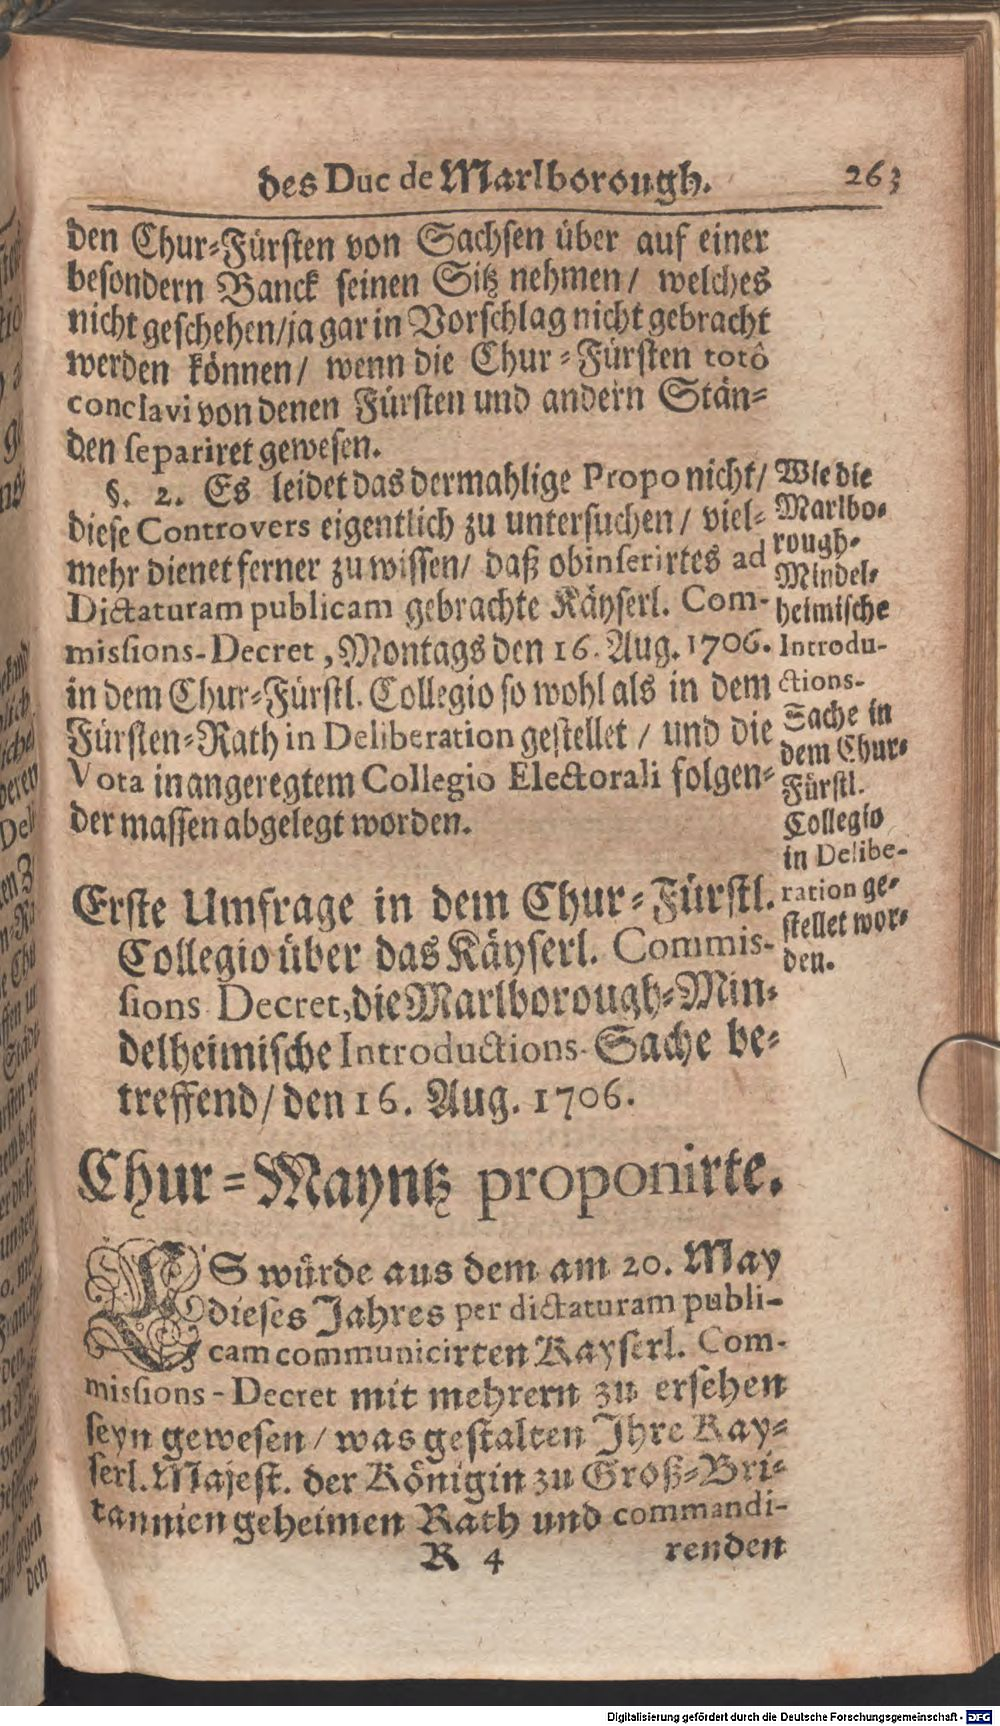 des Duc de Marlborough. 263
den Chur-Fürsten von Sachsen über auf einer
besondern Banck seinen Sitz nehmen / welches
nicht geschehen/ja gar in Vorschlag nicht gebracht
werden können / wenn die Chur-Fürsten totô
conclavi von denen Fürsten und andern Stän-
den separiret gewesen.
§. 2. Es leidet das dermahlige Propo nicht/
diese Controvers eigentlich zu untersuchen / viel-
mehr dienet ferner zu wissen/ daß obinserirtes ad
Dictaturam publicam gebrachte Käyserl. Com-
missions-Decret, Montags den 16. Aug. 1706.
in dem Chur-Fürstl. Collegio so wohl als in dem
Fürsten-Rath in Deliberation gestellet / und die
Vota in angeregtem Collegio Electorali folgen-
der massen abgelegt worden.
Wie die
Marlbo-
rough-
Mindel-
heimische
Introdu-
ctions-
Sache in
dem Chur-
Fürstl.
Collegio
in Delibe-
ration ge-
stellet wor-
den.
Erste Umfrage in dem Chur-Fürstl.
Collegio über das Käyserl. Commis-
sions Decret, die Marlborough-Min-
delheimische Introductions-Sache be-
treffend/ den 16. Aug. 1706.
Chur-Mayntz proponirte.
ES würde aus dem am 20. May
dieses Jahres per dictaturam publi-
cam communicirten Kayserl. Com-
missions-Decret mit mehrern zu ersehen
seyn gewesen / was gestalten Ihre Kay-
serl. Majest. der Königin zu Groß-Bri-
tannien geheimen Rath und commandi-
R 4 renden
Digitalisierung gefördert durch die Deutsche Forschungsgemeinschaft - DFG